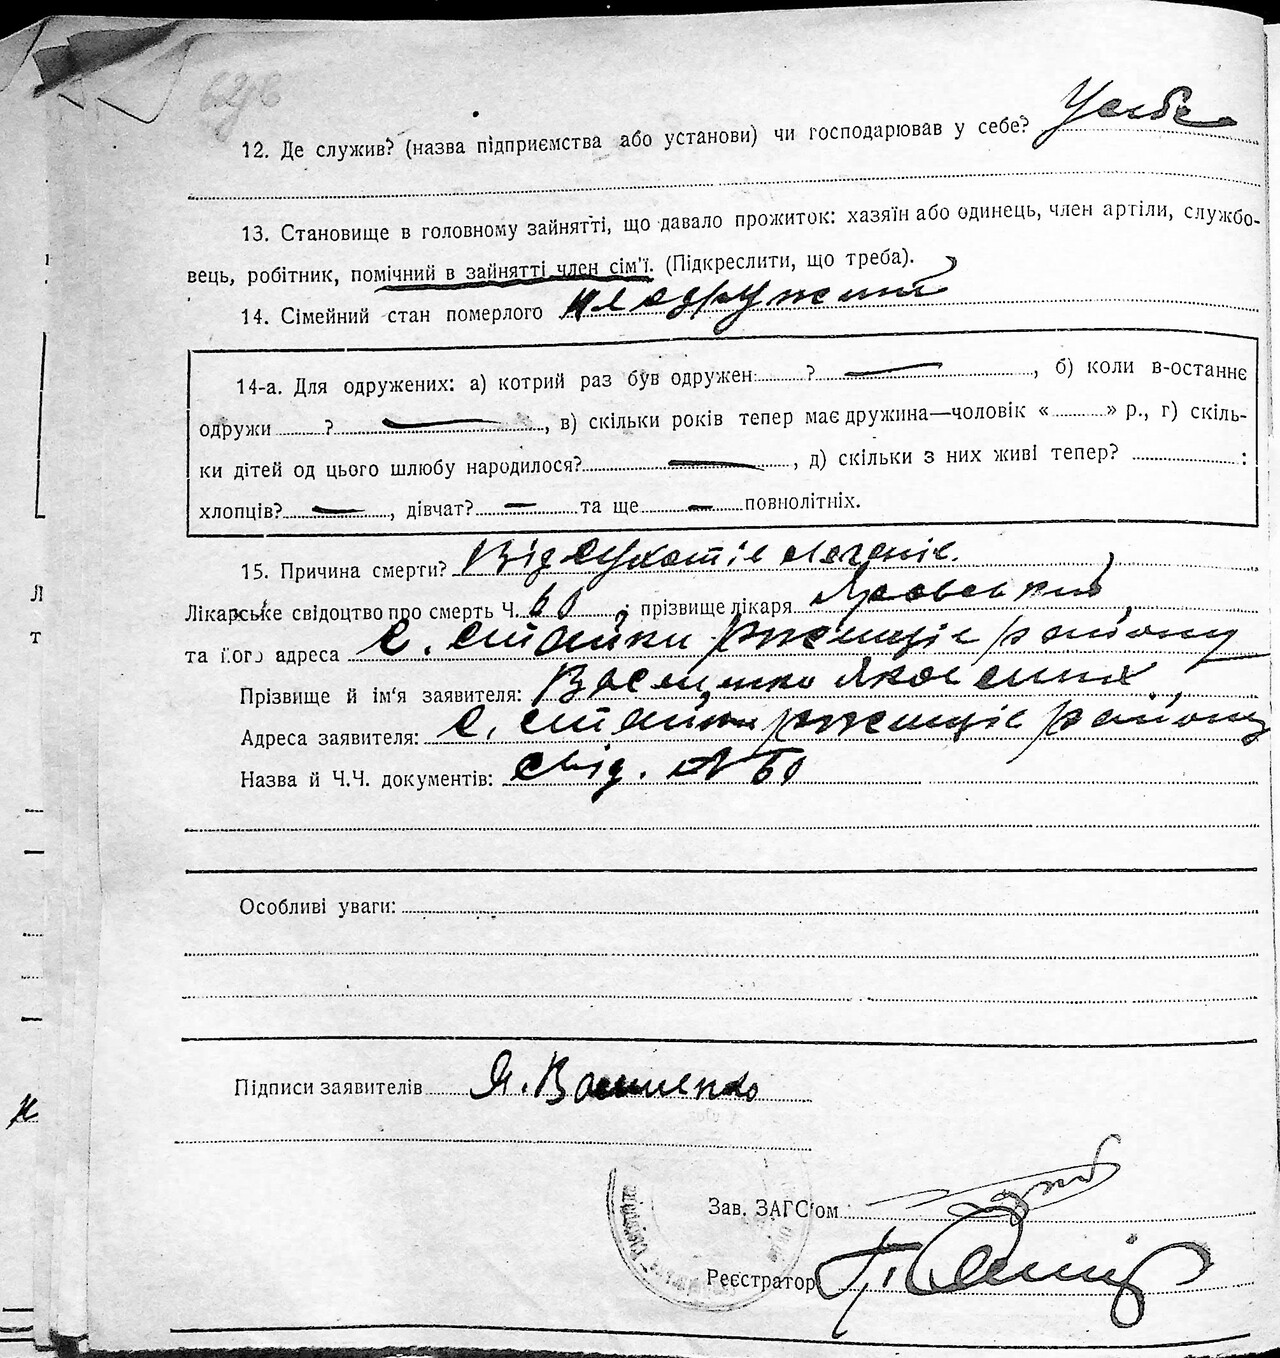 12. Де служив? (назва підприємства або установи) чи господарював у себе? У себе
13. Становище в головному зайнятті, що давало прожиток: хазяїн або одинець, член артіли, службо-
вець, робітник, помічний в зайнятті член сім'ї. (Підкреслити, що треба).
14. Сімейний стан померлого
14-а. Для одружених: а) котрий раз був одружен ?, б) коли в-останнє
одружи ?, в) скільки років тепер має дружина—чоловік « » р., г) скіль-
ки дітей од цього шлюбу народилося?, д) скільки з них живі тепер? :
хлопців? —, дівчат? — та ще — повнолітніх.
15. Причина смерти? Від
Лікарське свідоцтво про смерть Ч. 60; прізвище лікаря
та його адреса с. Стайки району
Прізвище й ім'я заявителя: Василенко
Адреса заявителя: с. Стайки району
Назва й Ч.Ч. документів: Свід. № 60
Особливі уваги:
Підписи заявителів Я. Василенко
Зав. ЗАГС'ом
Реєстратор